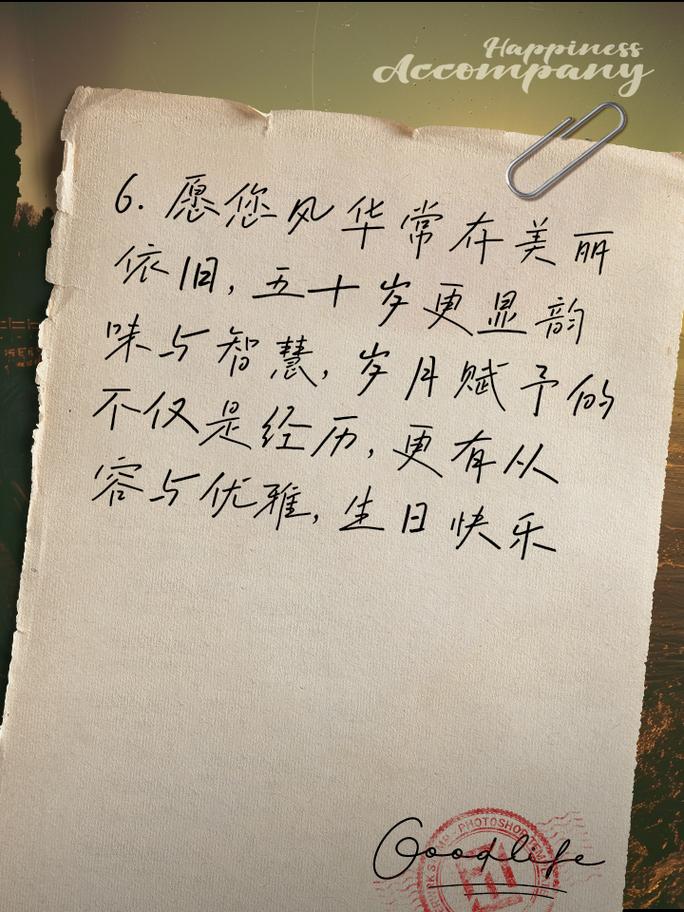 Happiness
Accompany
6. 愿您风华常在美丽
依旧，五十岁更显韵
味与智慧，岁月赋予的
不仅是经历，更有从
容与优雅，生日快乐
PHOTOSHOP
Goodlife